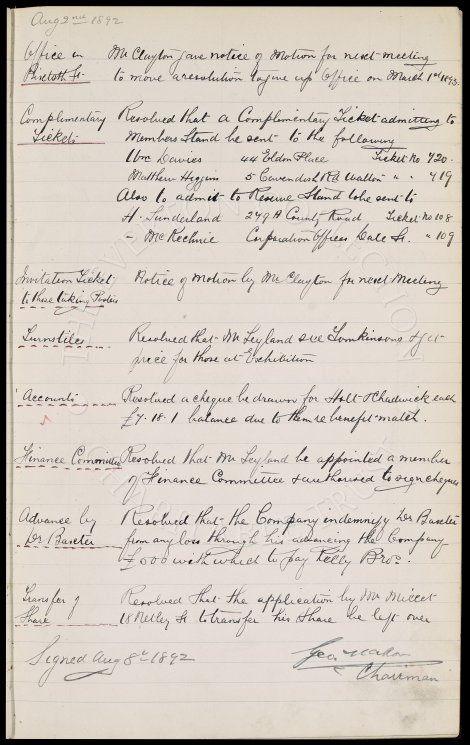 Aug 2nd 1892
Office in Mr Clayton gave notice of Motion for next meeting
Bixteth St. to move a resolution to give up Office on March 1st 1893.
Complimentary Resolved that a Complimentary Ticket admitting to
Tickets Members Stand be sent to the following
Wm Davies 44 Eldon Place Ticket No 420.
Matthew Higgins 5 Cavendish Rd Walton " " 419
Also to admit to Reserve Stand to be sent to
H. Sunderland 249A County Road Ticket No 108
- McKechnie Corporation Offices Dale St. " 109
Invitation Ticket Notice of Motion by Mr Clayton for next Meeting
to those taking Posters
Turnstiles Resolved that Mr Leyland see Tomkinsons & get
price for those at Exhibition
Accounts Resolved a cheque be drawn for Holt & Chadwick each
£7.18.1 balance due to them re benefit match.
Finance Committee Resolved that Mr Leyland be appointed a member
of Finance Committee & authorised to sign cheques
Advance by Resolved that the Company indemnify Dr Baxter
Dr Baxter from any loss through his advancing the Company
£1,000 with which to pay Kelly Bros.
Transfer of Resolved that the application by Mr Millet
Share 18 Netley St to transfer his Share be left over
Signed Aug 8th 1892 Geo. Mahon
Chairman